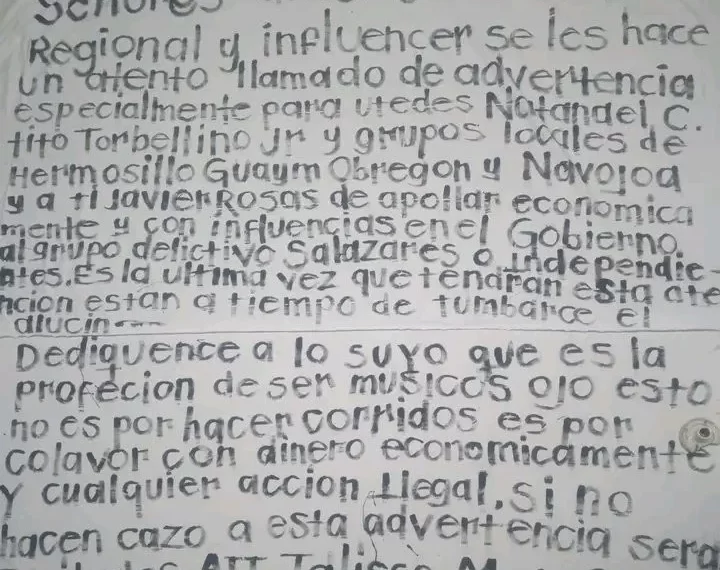 Señores
Regional y influencer se les hace
un atento llamado de advertencia
especialmente para utedes Natanael C.
tito Torbellino Jr y grupos locales de
Hermosillo Guaym Obregon y Navojoa
y a ti Javier Rosas de apollar economica
mente y con influencias en el Gobierno.
al grupo delictivo Salazares o independie-
ntes. Es la ultima vez que tendran esta ate
ncion estan a tiempo de tumbarce el
alucin
Dediquence a lo suyo que es la
profecion de ser musicos ojo esto
no es por hacer corridos es por
colavor con dinero economicamente
y cualquier accion Llegal. Si no
hacen cazo a esta advertencia sera
ATT Jalisco